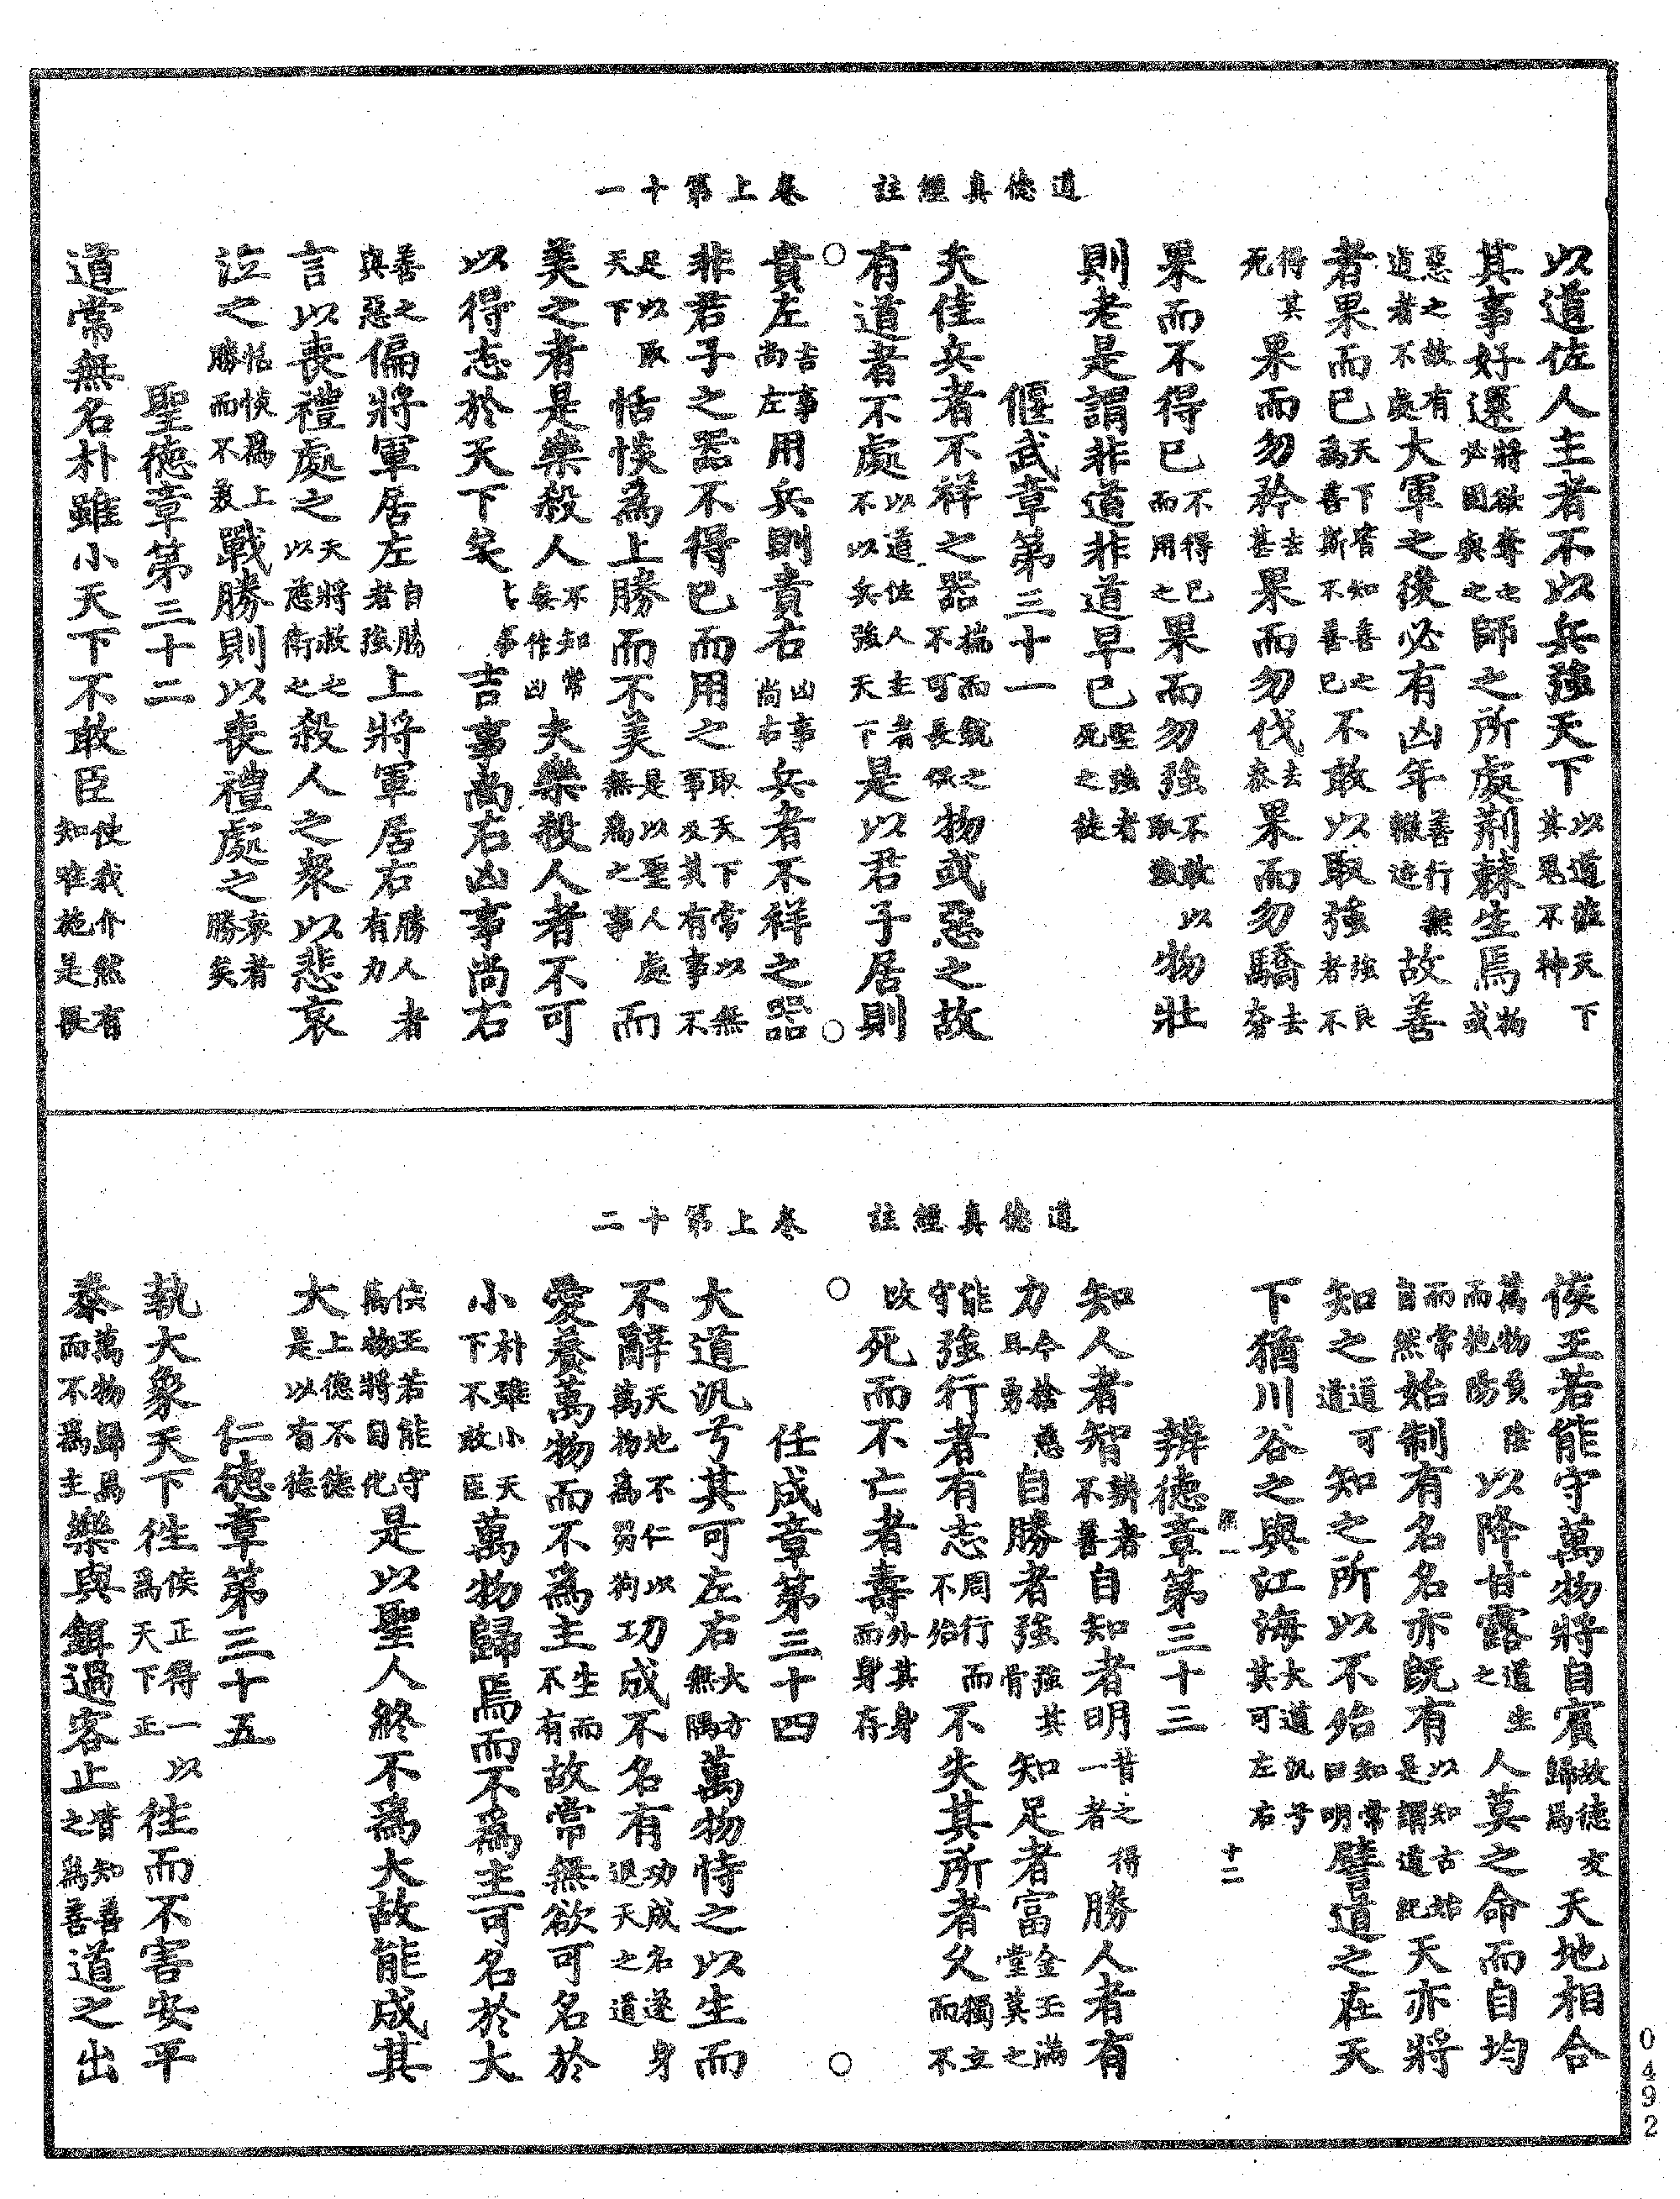 道德真經註　卷上第十一
以道佐人主者不以兵強天下以道蒞天下其鬼不神
其事好還將欲奪之必固與之師之所處荊棘生焉物或
惡之故有道者不處大軍之後必有凶年善行無轍迹故善
者果而已天下皆知善之為善斯不善已不敢以取強強良者不
得其死果而勿矜去甚果而勿伐去泰果而勿驕去奢
果而不得已不得已而用之果而勿強不敢以取強物壯
則老是謂非道非道早已堅強者死之徒
偃武章第三十一
夫佳兵者不祥之器揣而銳之不可長保物或惡之故
有道者不處以道佐人主者不以兵強天下是以君子居則
貴左吉事尚左用兵則貴右凶事尚右兵者不祥之器
非君子之器不得已而用之取天下常以無事及其有事不
足以取天下恬惔為上勝而不美是以聖人處無為之事而
美之者是樂殺人不知常妄作凶夫樂殺人者不可
以得志於天下矣吉事尚右凶事尚右
善之與惡偏將軍居左自勝者強上將軍居右勝人者有力
言以喪禮處之天將救之以慈衛之殺人之眾以悲哀
泣之恬惔為上勝而不美戰勝則以喪禮處之哀者勝矣
聖德章第三十二
道常無名朴雖小天下不敢臣使我介然有知唯施是畏
道德真經註　卷上第十二
侯王若能守萬物將自賓故德交歸焉天地相合
萬物負陰而抱陽以降甘露道生之人莫之命而自均
而常自然始制有名名亦既有以知古始是謂道紀天亦將
知之道可道知之所以不殆知常曰明譬道之在天
下猶川谷之與江海大道汎兮其可左右
十二
辯德章第三十三
知人者智辯者不善自知者明昔之得一者勝人者有
力今捨慈且勇自勝者強強其骨知足者富金玉滿堂莫之
能守強行者有志周行而不殆不失其所者久獨立而不
改死而不亡者壽外其身而身存
任成章第三十四
大道汎兮其可左右大方無隅萬物恃之以生而
不辭天地不仁以萬物為芻狗功成不名有功成名遂身退天之道
愛養萬物而不為主生而不有故常無欲可名於
小朴雖小天下不敢臣萬物歸焉而不為主可名於大
侯王若能守萬物將自化是以聖人終不為大故能成其
大上德不德是以有德
仁德章第三十五
執大象天下往侯正得一以為天下正往而不害安平
泰萬物歸焉而不為主樂與餌過客止皆知善之為善道之出
0492